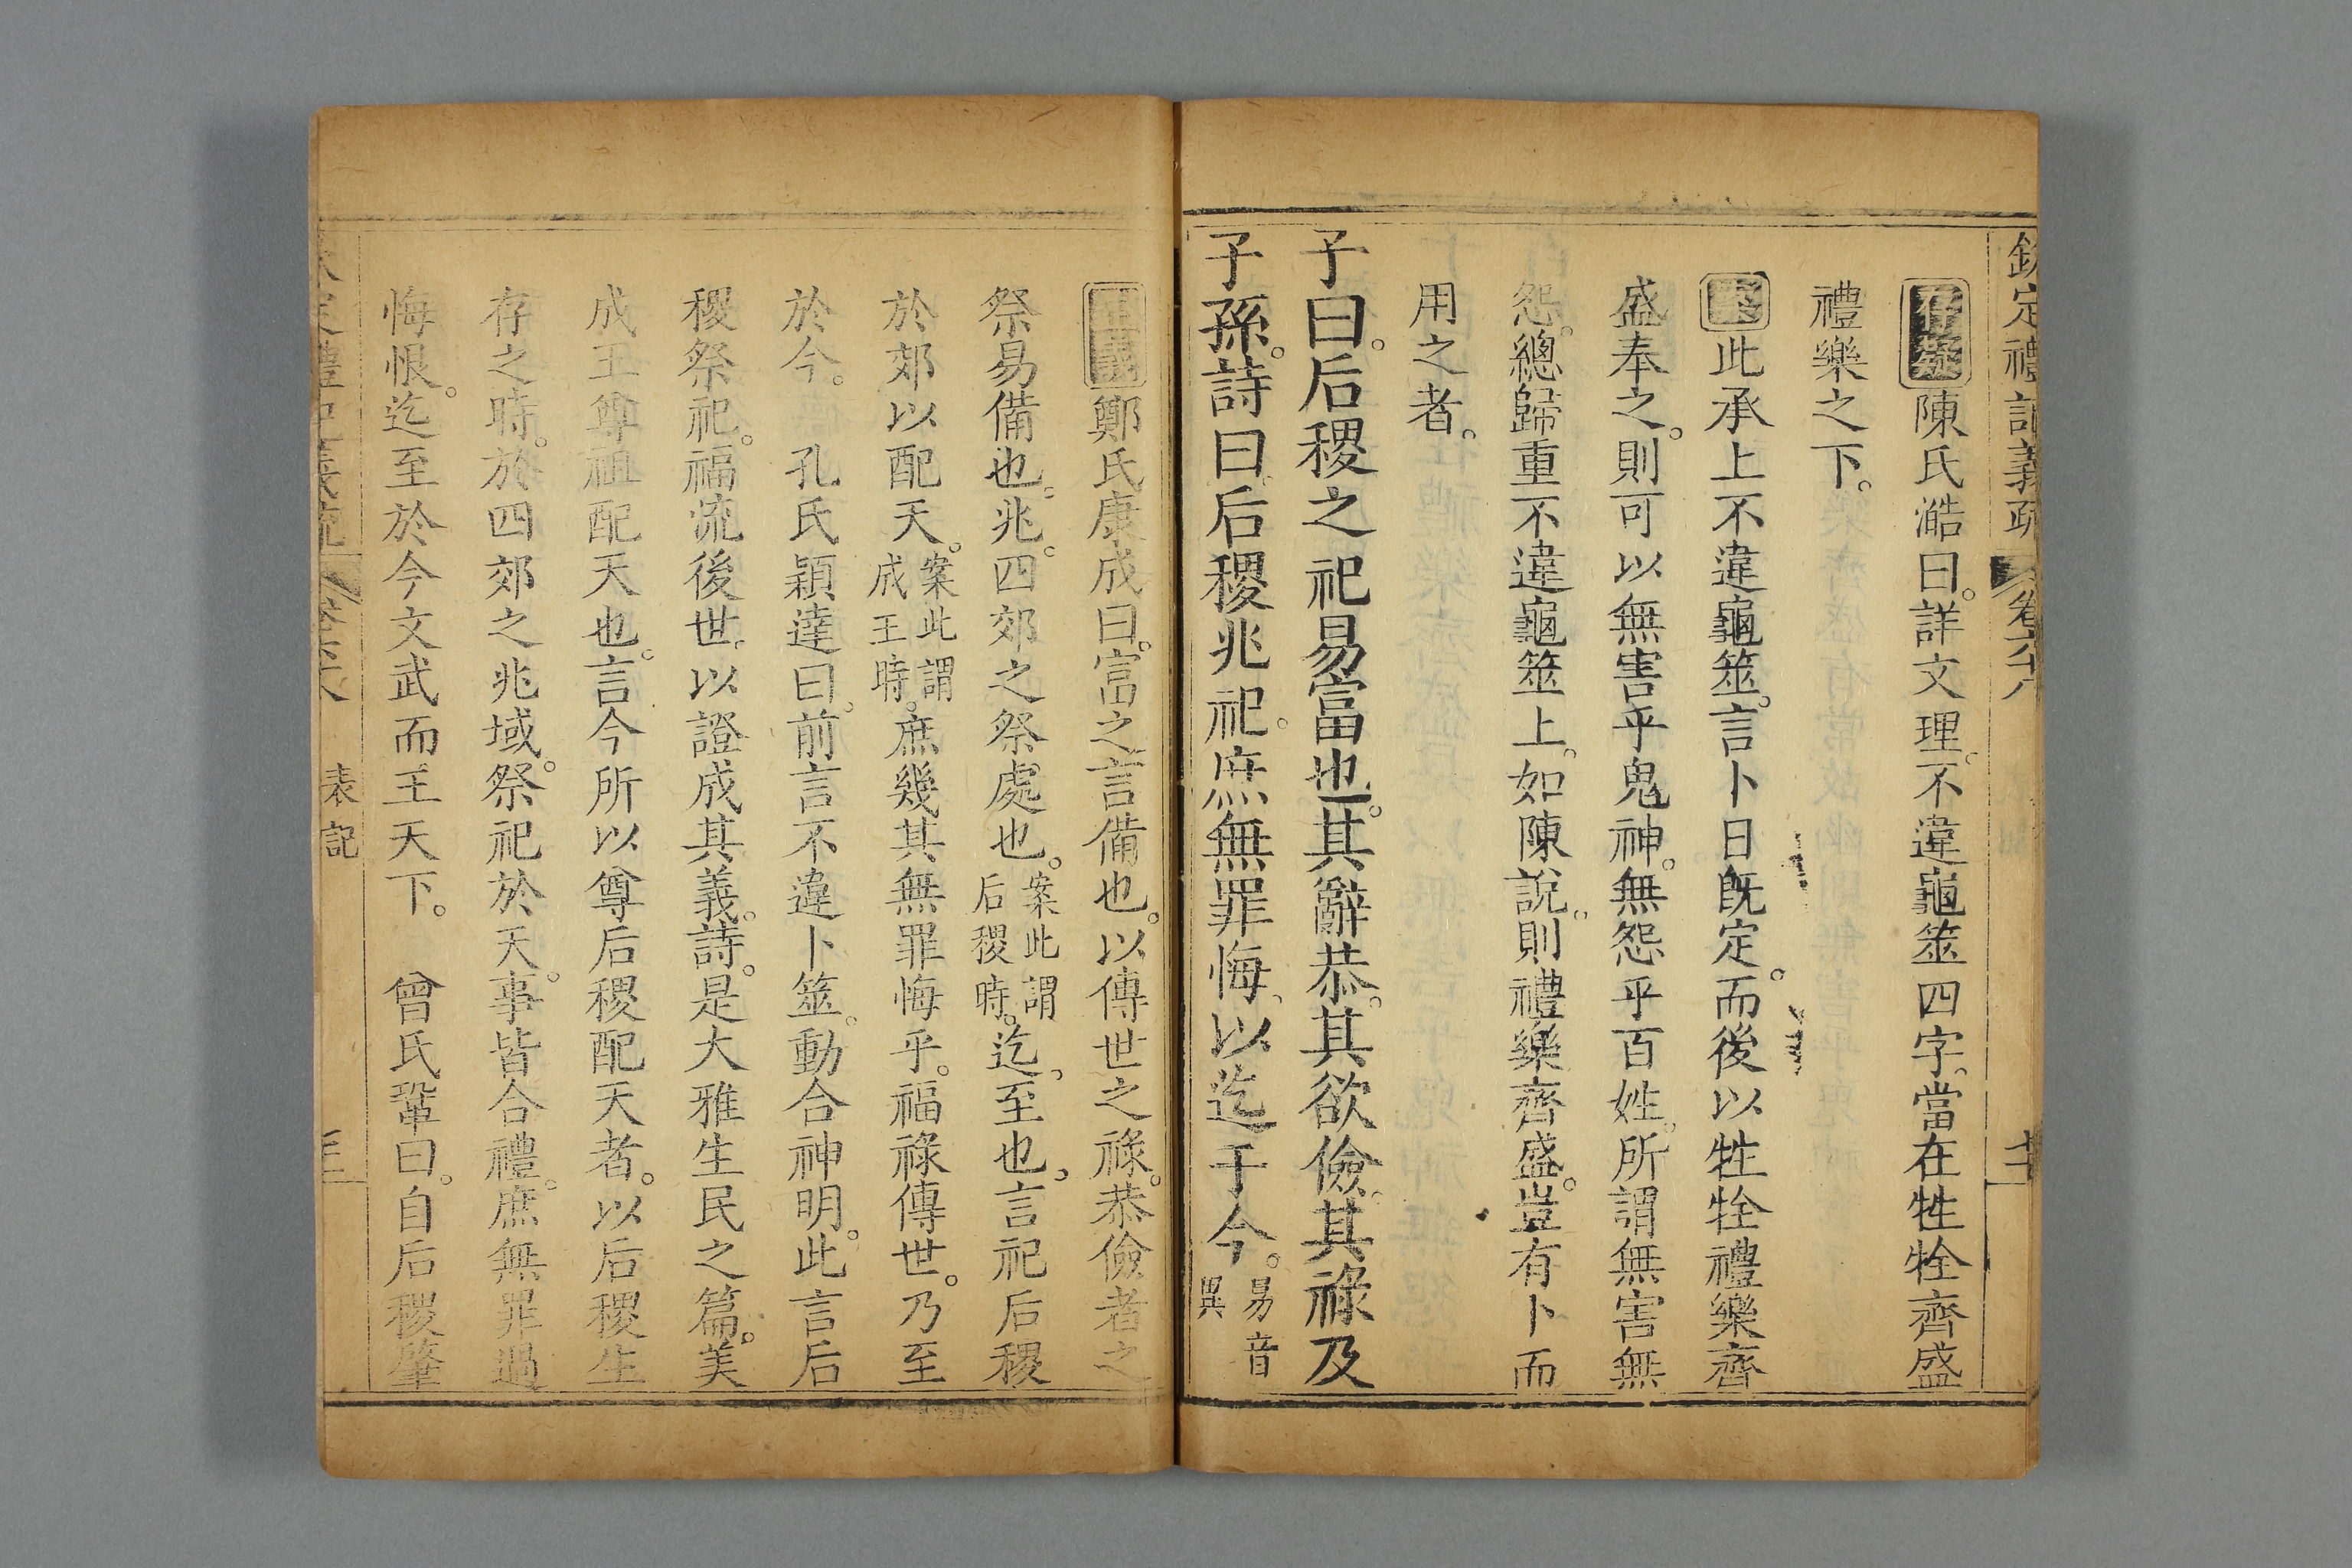 欽定禮記義疏 卷六十八 十一
存疑陳氏澔曰。詳文理。不違龜筮四字。當在牲牷齊盛
禮樂之下。
案此承上不違龜筮。言卜日旣定。而後以牲牷禮樂齊
盛奉之。則可以無害乎鬼神。無怨乎百姓。所謂無害無
怨。總歸重不違龜筮上。如陳說。則禮樂齊盛。豈有卜而
用之者。
子曰。后稷之祀易富也。其辭恭。其欲儉。其祿及
子孫。詩曰。后稷兆祀。庶無罪悔。以迄于今。易音異
正義鄭氏康成曰。富之言備也。以傳世之祿。恭儉者之
祭易備也。兆。四郊之祭處也。案此謂后稷時。迄。至也。言祀后稷
於郊以配天。案此謂成王時。庶幾其無罪悔乎。福祿傳世。乃至
於今。 孔氏穎達曰。前言不違卜筮。動合神明。此言后
稷祭祀。福流後世。以證成其義。詩。是大雅生民之篇。美
成王尊祖配天也。言今所以尊后稷配天者。以后稷生
存之時。於四郊之兆域。祭祀於天。事皆合禮。庶無罪過
悔恨。迄至於今文武而王天下。 曾氏鞏曰。自后稷肇
表記